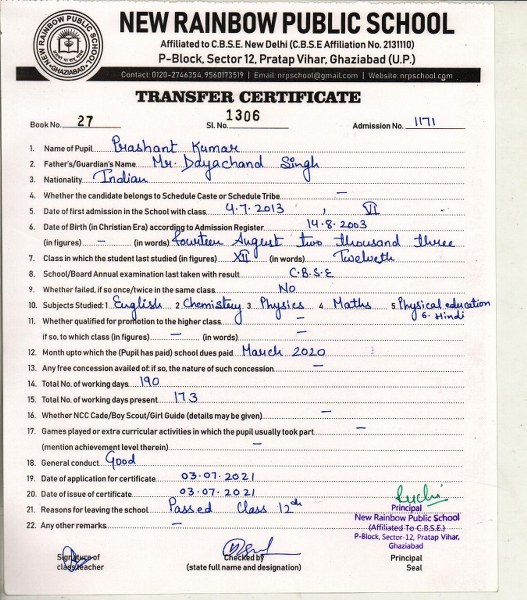 NEW RAINBOW PUBLIC SCHOOL
NEW RAINBOW PUBLIC SCHOOL
GHAZIABAD
Affiliated to C.B.S.E. New Delhi (C.B.S.E Affiliation No. 2131110)
P-Block, Sector 12, Pratap Vihar, Ghaziabad (U.P.)
Contact: 0120-2746354, 9560173519 | Email: nrpschool@gmail.com | Website: nrpschool.com
TRANSFER CERTIFICATE
Book No. 27 Sl. No. 1306 Admission No. 1171
1. Name of Pupil Prashant Kumar
2. Father's/Guardian's Name Mr. Dayachand Singh
3. Nationality Indian
4. Whether the candidate belongs to Schedule Caste or Schedule Tribe —
5. Date of first admission in the School with class 4.7.2013, VI
6. Date of Birth (in Christian Era) according to Admission Register 14.8.2003
(in figures) — (in words) fourteen August two thousand three
7. Class in which the student last studied (in figures) XII (in words) Twelveth
8. School/Board Annual examination last taken with result C.B.S.E
9. Whether failed, if so once/twice in the same class No
10. Subjects Studied: 1 English 2 Chemistry 3 Physics 4. Maths 5. Physical education
6. Hindi
11. Whether qualified for promotion to the higher class —
if so, to which class (in figures) — (in words) —
12. Month upto which the (Pupil has paid) school dues paid March 2020
13. Any free concession availed of: if so, the nature of such concession —
14. Total No. of working days 190
15. Total No. of working days present 173
16. Whether NCC Cade/Boy Scout/Girl Guide (details may be given) —
17. Games played or extra curricular activities in which the pupil usually took part —
(mention achievement level therein) —
18. General conduct Good
19. Date of application for certificate 03.07.2021
20. Date of issue of certificate 03.07.2021
21. Reasons for leaving the school Passed Class 12th
22. Any other remarks —
Ruchi
Principal
New Rainbow Public School
(Affiliated To C.B.S.E.)
P-Block, Sector-12, Pratap Vihar,
Ghaziabad
Signature of
class teacher
Checked by
(state full name and designation)
Principal
Seal